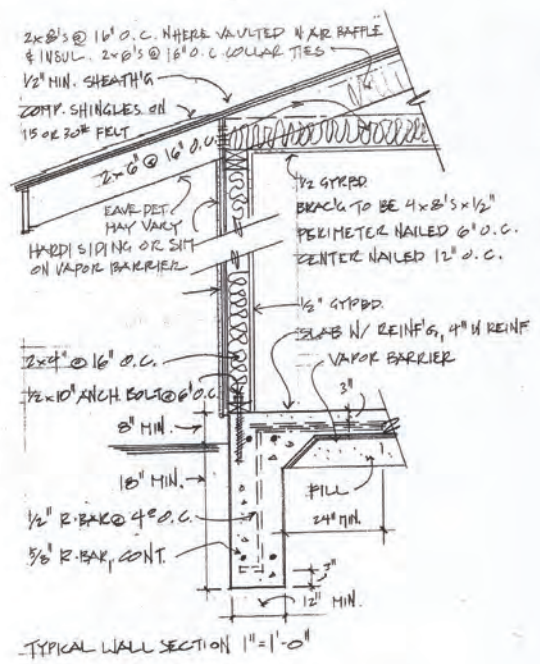 2x8's @ 16" O.C. WHERE VAULTED W AIR BAFFLE
& INSUL. 2x6's @ 16" O.C. COLLAR TIES
1/2" MIN. SHEATH'G
COMP. SHINGLES ON
15 OR 30# FELT
2x6" @ 16" O.C.
EAVE DET.
MAY VARY
HARDI SIDING OR SIM
ON VAPOR BARRIER
1/2 GYPBD.
BRAC'G TO BE 4x8's x 1/2"
PERIMETER NAILED 6" O.C.
CENTER NAILED 12" O.C.
1/2" GYPBD.
SLAB W/ REINF'G, 4" W REINF
VAPOR BARRIER
2x4" @ 16" O.C.
1/2x10" ANCH. BOLT @ 6' O.C.
3"
8" MIN.
18" MIN.
FILL
24" MIN.
1/2" R-BAR @ 4' O.C.
5/8" R-BAR, CONT.
3"
12" MIN.
TYPICAL WALL SECTION 1"=1'-0"